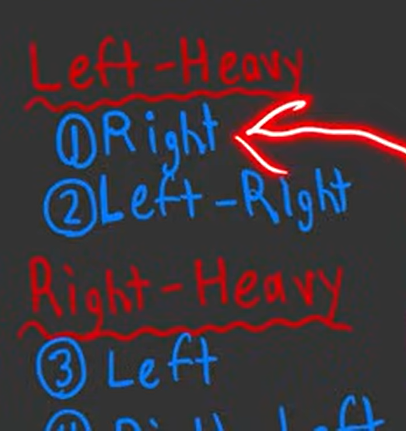 Left-Heavy
①Right
②Left-Right
Right-Heavy
③ Left